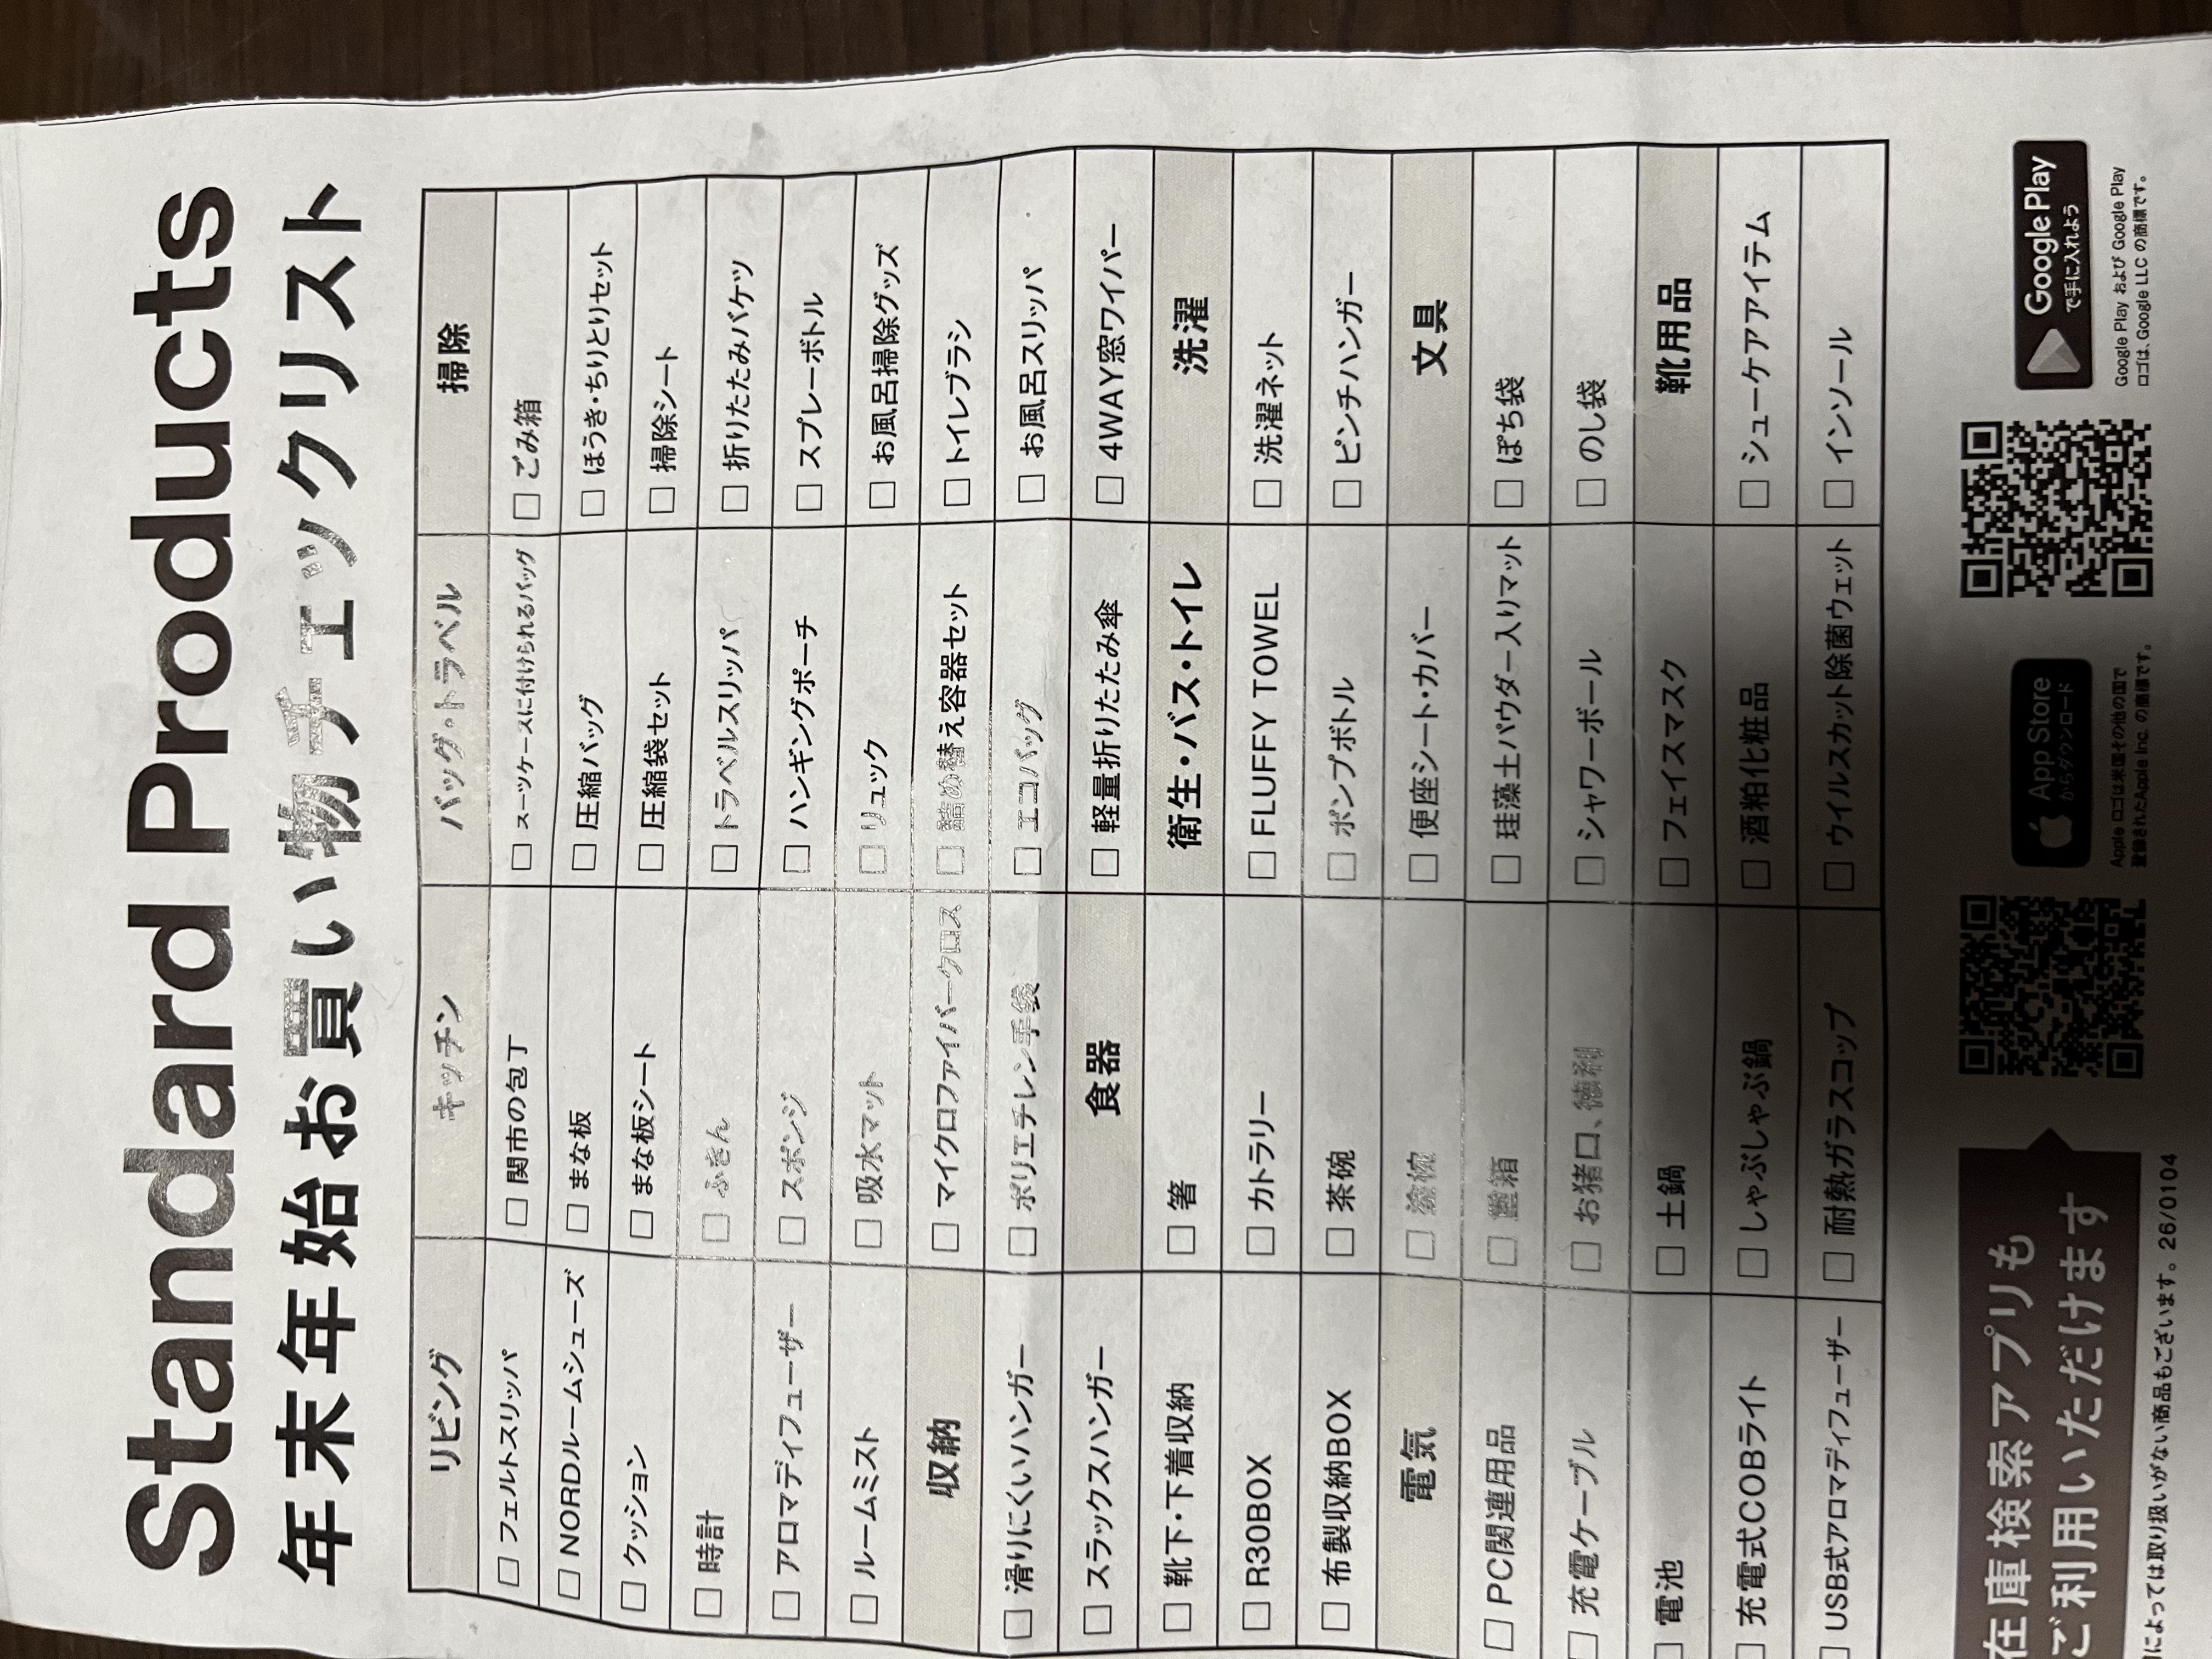 Standard Products
年末年始お買い物チェックリスト
リビング キッチン バッグ・トラベル 掃除
□ フェルトスリッパ □ 関市の包丁 □ スーツケースに付けられるバッグ □ ごみ箱
□ NORDルームシューズ □ まな板 □ 圧縮バッグ □ ほうき・ちりとりセット
□ クッション □ まな板シート □ 圧縮袋セット □ 掃除シート
□ 時計 □ ふきん □ トラベルスリッパ □ 折りたたみバケツ
□ アロマディフューザー □ スポンジ □ ハンギングポーチ □ スプレーボトル
□ ルームミスト □ 吸水マット □ リュック □ お風呂掃除グッズ
収納 □ マイクロファイバークロス □ 詰め替え容器セット □ トイレブラシ
□ 滑りにくいハンガー □ ポリエチレン手袋 □ エコバッグ □ お風呂スリッパ
□ スラックスハンガー 食器 □ 軽量折りたたみ傘 □ 4WAY窓ワイパー
□ 靴下・下着収納 □ 箸 衛生・バス・トイレ 洗濯
□ R30BOX □ カトラリー □ FLUFFY TOWEL □ 洗濯ネット
□ 布製収納BOX □ 茶碗 □ ポンプボトル □ ピンチハンガー
電気 □ 塗椀 □ 便座シート・カバー 文具
□ PC関連用品 □ 重箱 □ 珪藻土パウダー入りマット □ ぽち袋
□ 充電ケーブル □ お猪口、徳利 □ シャワーボール □ のし袋
□ 電池 □ 土鍋 □ フェイスマスク 靴用品
□ 充電式COBライト □ しゃぶしゃぶ鍋 □ 酒粕化粧品 □ シューケアアイテム
□ USB式アロマディフューザー □ 耐熱ガラスコップ □ ウイルスカット除菌ウェット □ インソール
在庫検索アプリも
ご利用いただけます
App Store
からダウンロード
Apple ロゴは米国その他の国で
登録されたApple Inc. の商標です。
Google Play
で手に入れよう
Google Play および Google Play
ロゴは、Google LLC の商標です。
によっては取り扱いがない商品もございます。26/0104